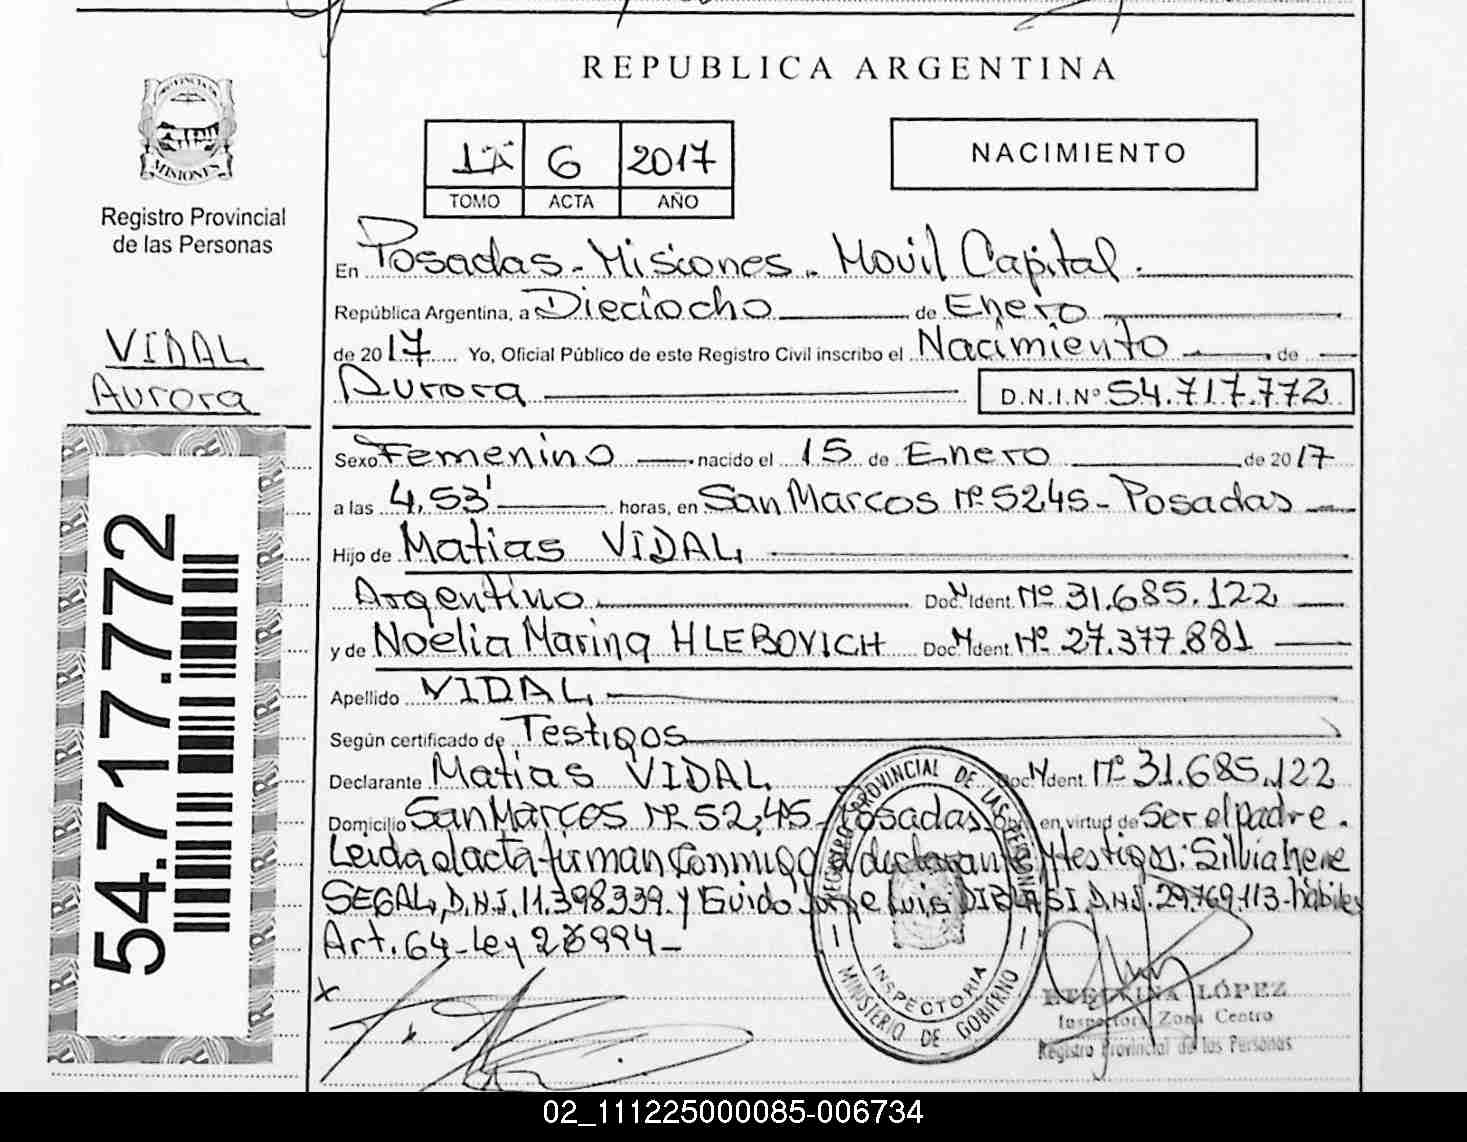 REPUBLICA ARGENTINA
PROVINCIA
MISIONES
Registro Provincial
de las Personas
6 2017
TOMO ACTA AÑO
NACIMIENTO
En Posadas - Misiones - Movil Capital.
República Argentina, a Dieciocho de Enero
de 2017 Yo, Oficial Público de este Registro Civil inscribo el Nacimiento de
Aurora D.N.I.Nº 54.717.772
VIDAL
Aurora
54.717.772
Sexo Femenino nacido el 15 de Enero de 2017
a las 4,53' horas, en San Marcos Nº 5245 - Posadas
Hijo de Matias VIDAL
Argentino Doc. Ident. Nº 31.685.122
y de Noelia Marina HLEBOVICH Doc. Ident. Nº 27.377.881
Apellido VIDAL
Según certificado de Testigos
Declarante Matias VIDAL Doc. Ident. Nº 31.685.122
Domicilio San Marcos Nº 5245 - Posadas Obra en virtud de Ser el padre.
Leida el acta firman conmigo el declarante y testigos: Silvia Irene
SEGAL, D.N.I. 11.398.339 y Guido Jorge Luis DIBLASI D.N.I. 29.769.113 - hábiles
Art. 64 - Ley 26994 -
REGISTRO PROVINCIAL DE LAS PERSONAS
INSPECTORIA
MINISTERIO DE GOBIERNO
LÓPEZ
Inspectora Zona Centro
Registro Provincial de las Personas
02_111225000085-006734